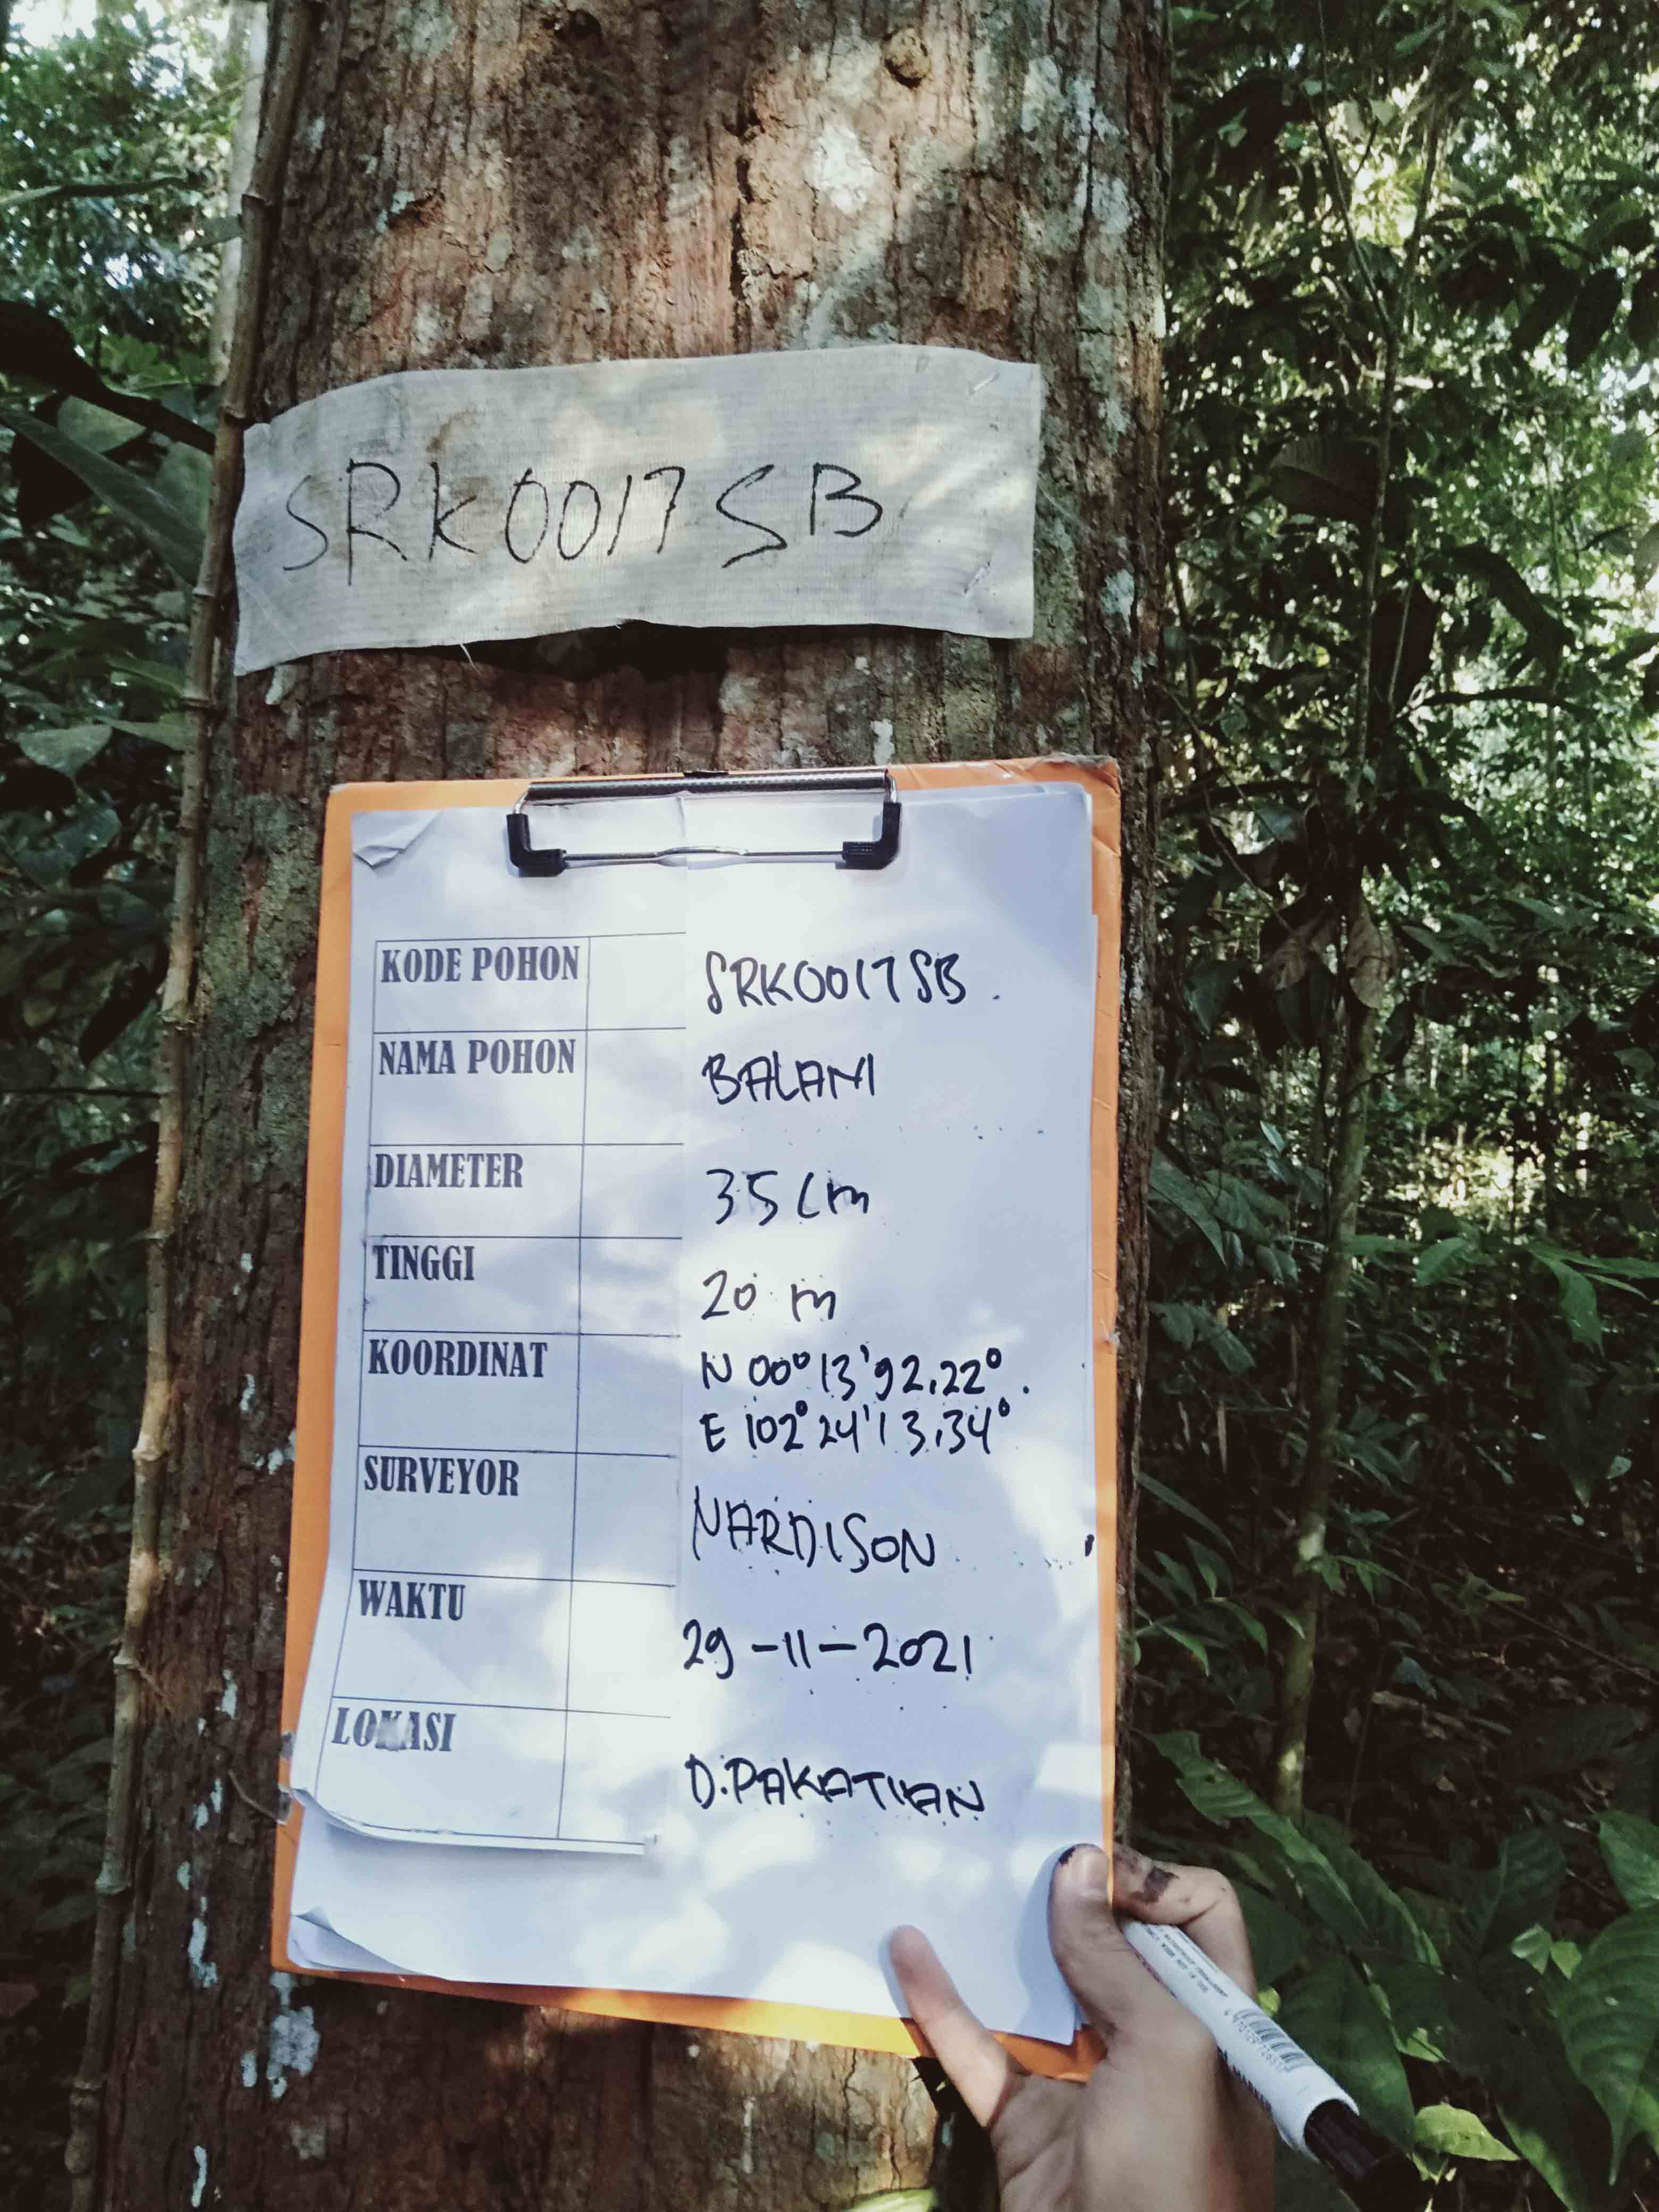 SRK0017SB
KODE POHON SRK0017SB.
NAMA POHON BALAM
DIAMETER 35 cm
TINGGI 20 m
KOORDINAT N 00° 13' 92.22°.
E 102° 24' 13.34°
SURVEYOR NARDISON
WAKTU 29-11-2021
LOKASI D.PAKATUAN